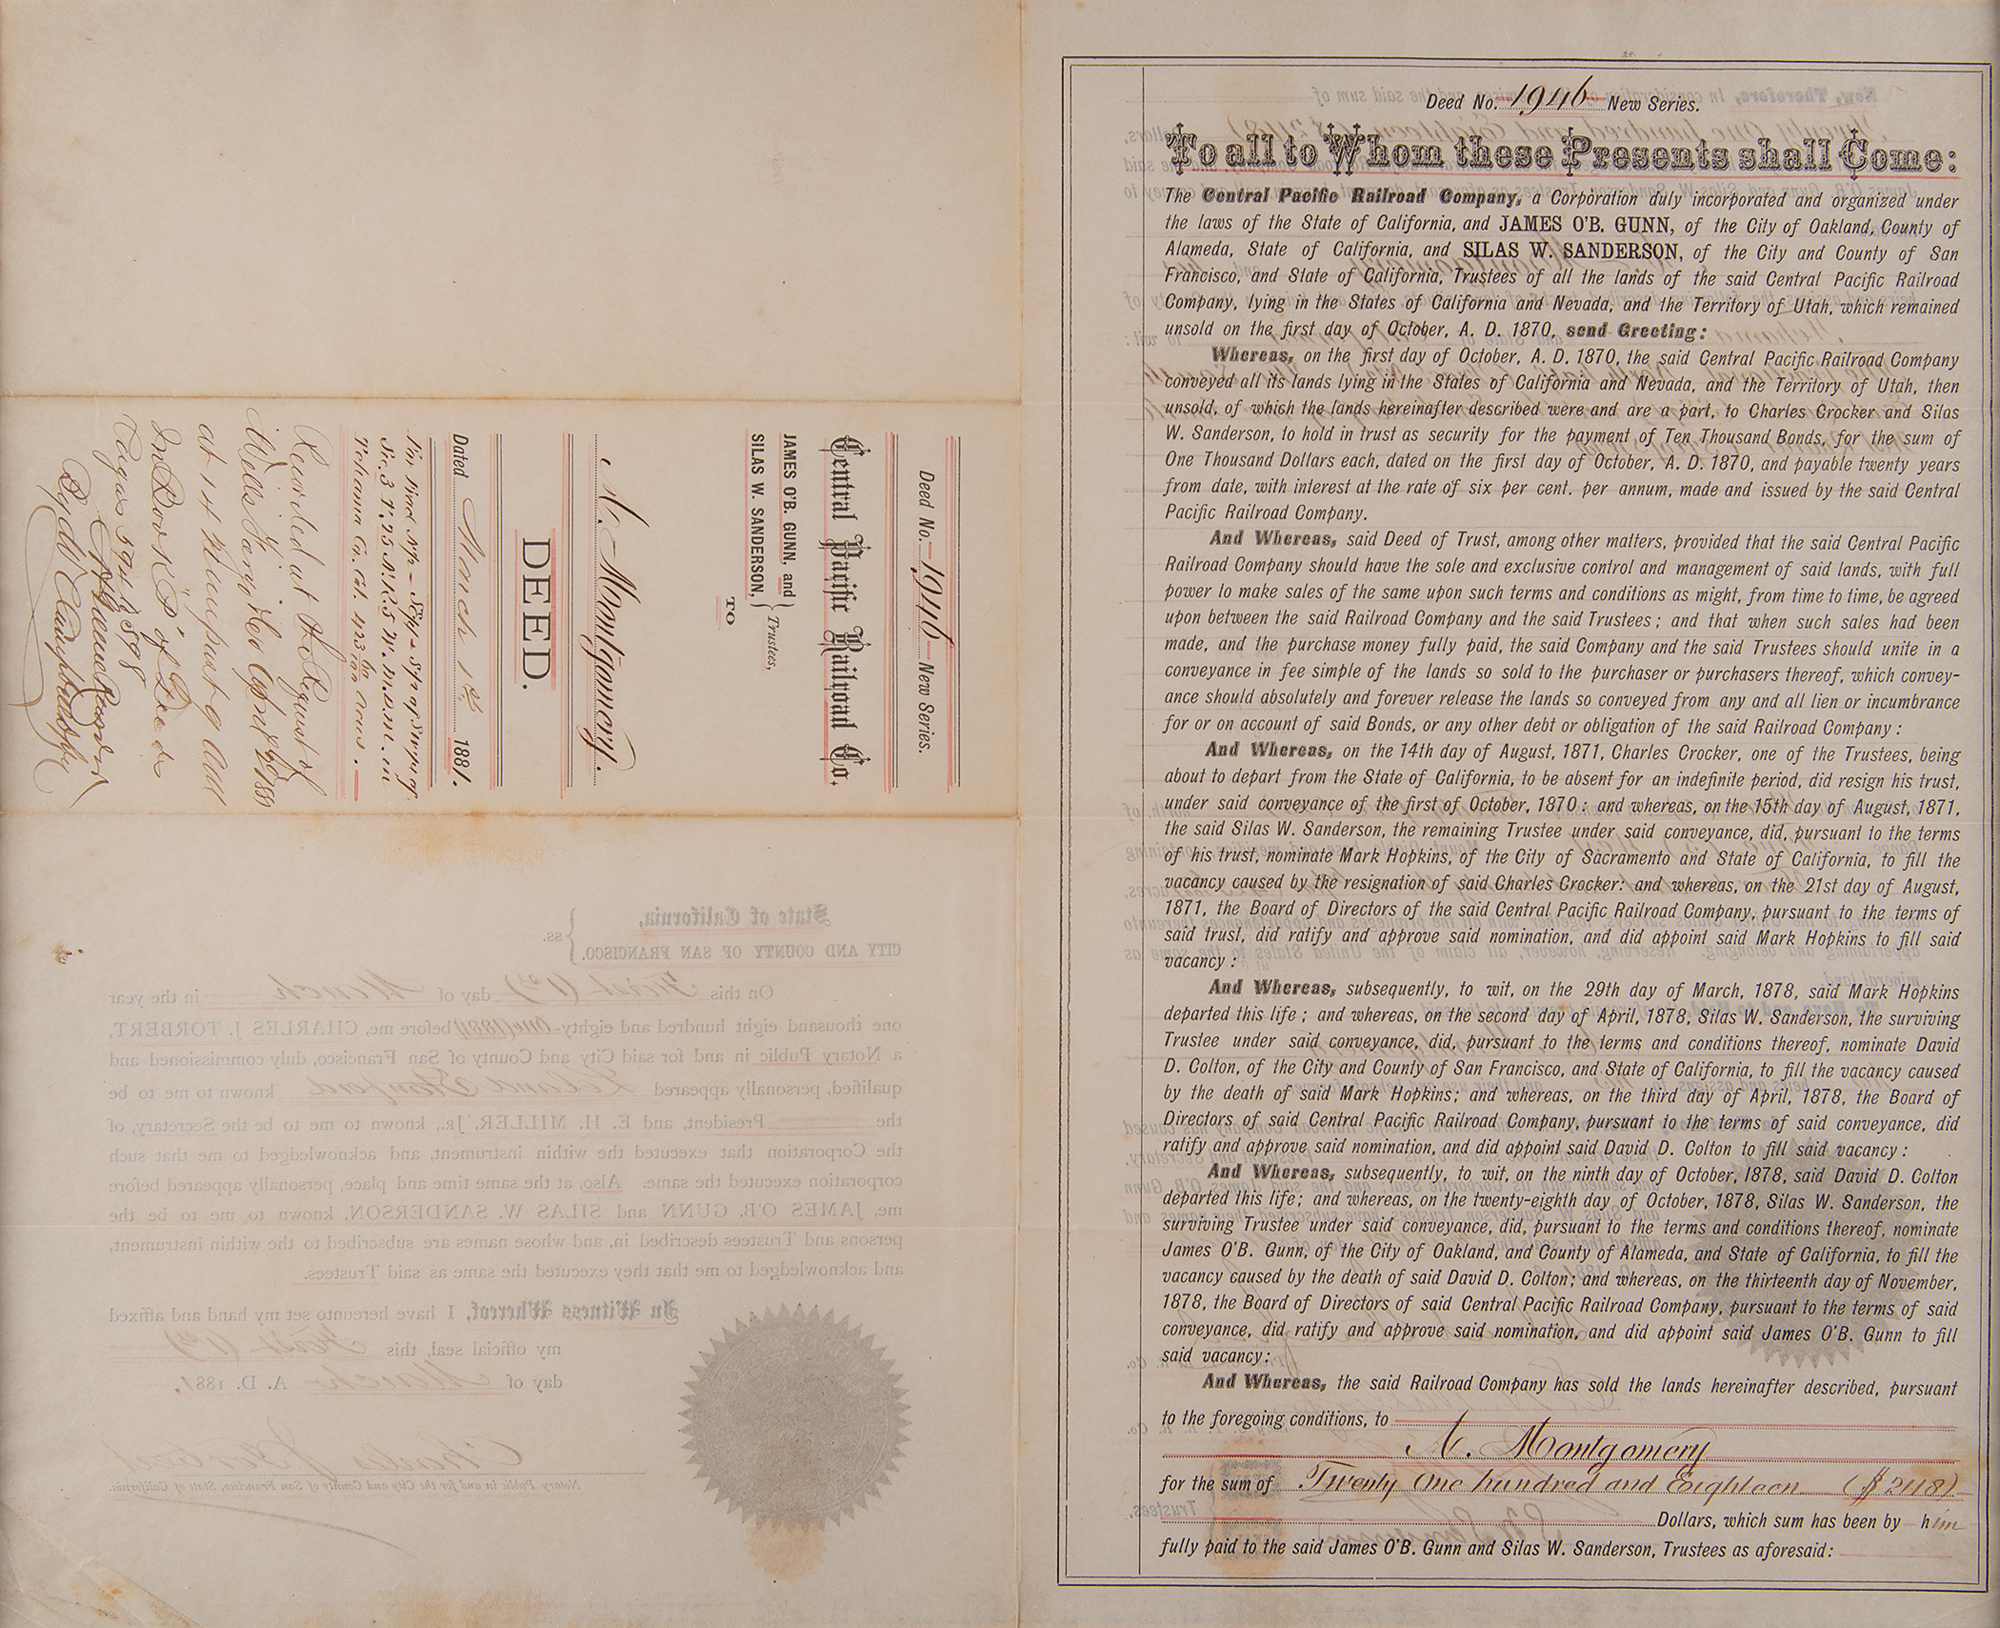 Deed No. 1946 New Series.
To all to Whom these Presents shall Come:
The Central Pacific Railroad Company, a Corporation duly incorporated and organized under
the laws of the State of California, and JAMES O'B. GUNN, of the City of Oakland, County of
Alameda, State of California, and SILAS W. SANDERSON, of the City and County of San
Francisco, and State of California, Trustees of all the lands of the said Central Pacific Railroad
Company, lying in the States of California and Nevada, and the Territory of Utah, which remained
unsold on the first day of October, A. D. 1870, send Greeting:
Whereas, on the first day of October, A. D. 1870, the said Central Pacific Railroad Company
conveyed all its lands lying in the States of California and Nevada, and the Territory of Utah, then
unsold, of which the lands hereinafter described were and are a part, to Charles Crocker and Silas
W. Sanderson, to hold in trust as security for the payment of Ten Thousand Bonds, for the sum of
One Thousand Dollars each, dated on the first day of October, A. D. 1870, and payable twenty years
from date, with interest at the rate of six per cent. per annum, made and issued by the said Central
Pacific Railroad Company.
And Whereas, said Deed of Trust, among other matters, provided that the said Central Pacific
Railroad Company should have the sole and exclusive control and management of said lands, with full
power to make sales of the same upon such terms and conditions as might, from time to time, be agreed
upon between the said Railroad Company and the said Trustees; and that when such sales had been
made, and the purchase money fully paid, the said Company and the said Trustees should unite in a
conveyance in fee simple of the lands so sold to the purchaser or purchasers thereof, which convey-
ance should absolutely and forever release the lands so conveyed from any and all lien or incumbrance
for or on account of said Bonds, or any other debt or obligation of the said Railroad Company:
And Whereas, on the 14th day of August, 1871, Charles Crocker, one of the Trustees, being
about to depart from the State of California, to be absent for an indefinite period, did resign his trust,
under said conveyance of the first of October, 1870: and whereas, on the 15th day of August, 1871,
the said Silas W. Sanderson, the remaining Trustee under said conveyance, did, pursuant to the terms
of his trust, nominate Mark Hopkins, of the City of Sacramento and State of California, to fill the
vacancy caused by the resignation of said Charles Crocker: and whereas, on the 21st day of August,
1871, the Board of Directors of the said Central Pacific Railroad Company, pursuant to the terms of
said trust, did ratify and approve said nomination, and did appoint said Mark Hopkins to fill said
vacancy:
And Whereas, subsequently, to wit, on the 29th day of March, 1878, said Mark Hopkins
departed this life; and whereas, on the second day of April, 1878, Silas W. Sanderson, the surviving
Trustee under said conveyance, did, pursuant to the terms and conditions thereof, nominate David
D. Colton, of the City and County of San Francisco, and State of California, to fill the vacancy caused
by the death of said Mark Hopkins; and whereas, on the third day of April, 1878, the Board of
Directors of said Central Pacific Railroad Company, pursuant to the terms of said conveyance, did
ratify and approve said nomination, and did appoint said David D. Colton to fill said vacancy:
And Whereas, subsequently, to wit, on the ninth day of October, 1878, said David D. Colton
departed this life; and whereas, on the twenty-eighth day of October, 1878, Silas W. Sanderson, the
surviving Trustee under said conveyance, did, pursuant to the terms and conditions thereof, nominate
James O'B. Gunn, of the City of Oakland, and County of Alameda, and State of California, to fill the
vacancy caused by the death of said David D. Colton; and whereas, on the thirteenth day of November,
1878, the Board of Directors of said Central Pacific Railroad Company, pursuant to the terms of said
conveyance, did ratify and approve said nomination, and did appoint said James O'B. Gunn to fill
said vacancy:
And Whereas, the said Railroad Company has sold the lands hereinafter described, pursuant
to the foregoing conditions, to
A. Montgomery
for the sum of Twenty One hundred and Eighteen ($2118)
Dollars, which sum has been by him
fully paid to the said James O'B. Gunn and Silas W. Sanderson, Trustees as aforesaid:
Deed No. 1946 New Series.
Central Pacific Railroad Co.
JAMES O'B. GUNN, and
SILAS W. SANDERSON,
Trustees,
TO
A. Montgomery.
DEED.
Dated March 1st 1881.
Sec. 3 T. 25 N. R. 5 W. M.D.M. in
Tehama Co. Cal.
Recorded at Request of
Wells Fargo & Co April
at 14 min past 9 AM
In Book "P" of Deeds
Pages 594
State of California,
CITY AND COUNTY OF SAN FRANCISCO. ss.
On this First (1st) day of March in the year
one thousand eight hundred and eighty-One (1881) before me, CHARLES J. TORBERT,
a Notary Public in and for said City and County of San Francisco, duly commissioned and
qualified, personally appeared Leland Stanford known to me to be
the President, and E. H. MILLER, Jr., known to me to be the Secretary, of
the Corporation that executed the within instrument, and acknowledged to me that such
corporation executed the same. Also, at the same time and place, personally appeared before
me, JAMES O'B. GUNN and SILAS W. SANDERSON, known to me to be the
persons and Trustees described in, and whose names are subscribed to the within instrument,
and acknowledged to me that they executed the same as said Trustees.
In Witness Whereof, I have hereunto set my hand and affixed
my official seal, this First (1st)
day of March A. D. 1881.
Charles J. Torbert
Notary Public in and for the City and County of San Francisco, State of California.